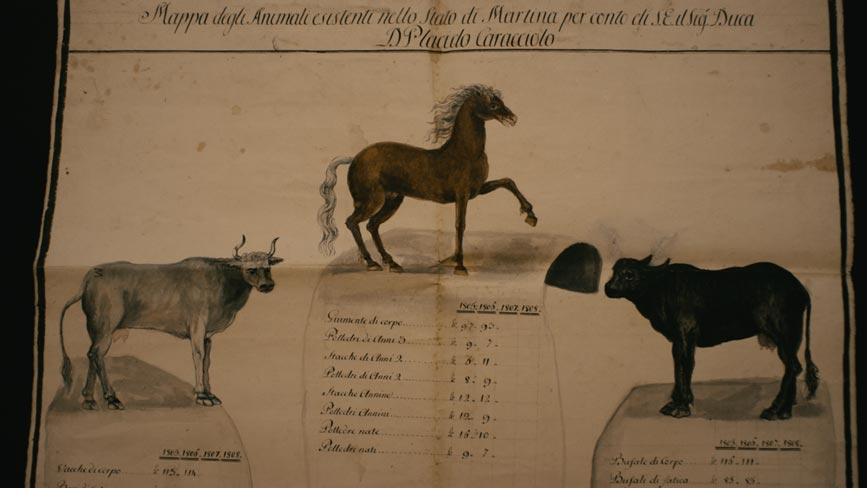 Mappa degli Animali esistenti nello Stato di Martina per conto di S.E. il Sig. Duca
D. Placido Caracciolo
M
1805. 1806. 1807. 1808.
Giumente di corpo 97. 93.
Polledri di Anni 3 9. 7.
Stacche di Anni 2. 8. 11.
Polledri di Anni 2 8. 9.
Stacche Annine 12. 12.
Polledri Annini 12. 9.
Polledre nate 16. 10.
Polledri nati 9. 7.
1805. 1806. 1807. 1808.
Vacche di corpo 115. 114.
1805. 1806. 1807. 1808.
Bufale di Corpo 116. 111.
Bufali di fatica 85. 85.